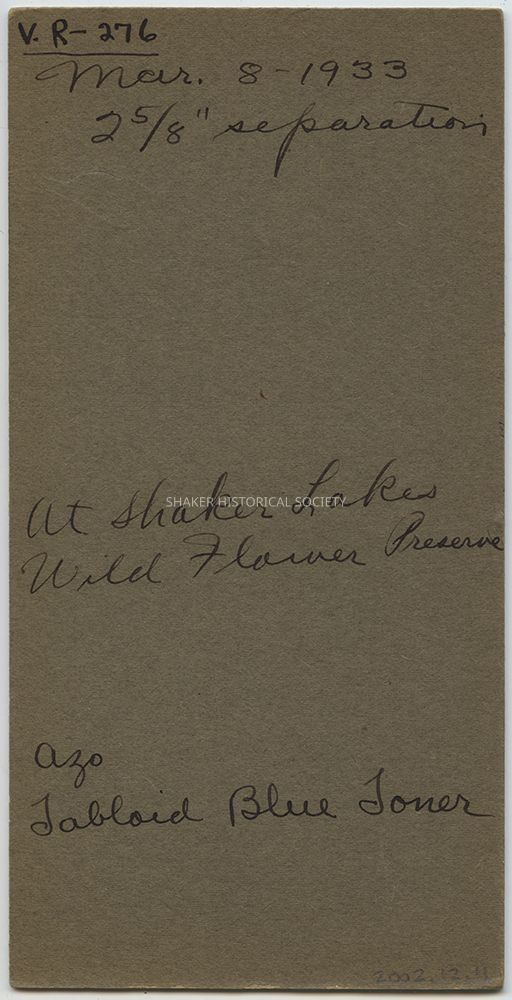 V. R-276
Mar. 8-1933
2 5/8" separation
At Shaker Lakes
SHAKER HISTORICAL SOCIETY
Wild Flower Preserve
Azo
Tabloid Blue Toner
2002.12.11